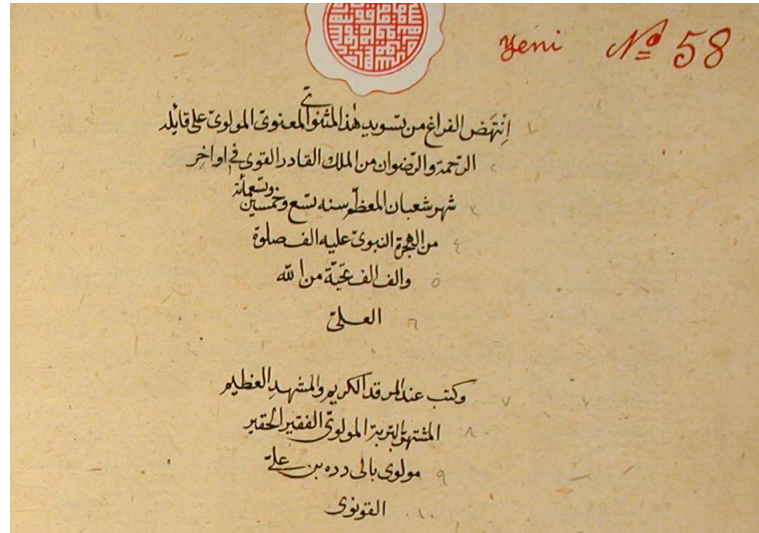 Yeni № 58
اِنْتهَض الفراغ من تسويد هٰذا المثنوىّ المعنوىّ المولوىّ على قايله ١
الرّحمة والرّضوان من الملك القادر القوى فى اواخر ٢
شهر شعبان المعظّم سنه تسع وخمسين وتسعمائة ٣
من الهجرة النبوىّ عليه الف صلوة ٤
والف الف تحيّة من اللّه ٥
العلىّ ٦
وكتب عند المرقد الكريم والمشهد العظيم ٧
المشتهر بالتربة المولوىّ الفقير الحقير ٨
مولوى بالى دده بن علىّ ٩
القونوى ١٠